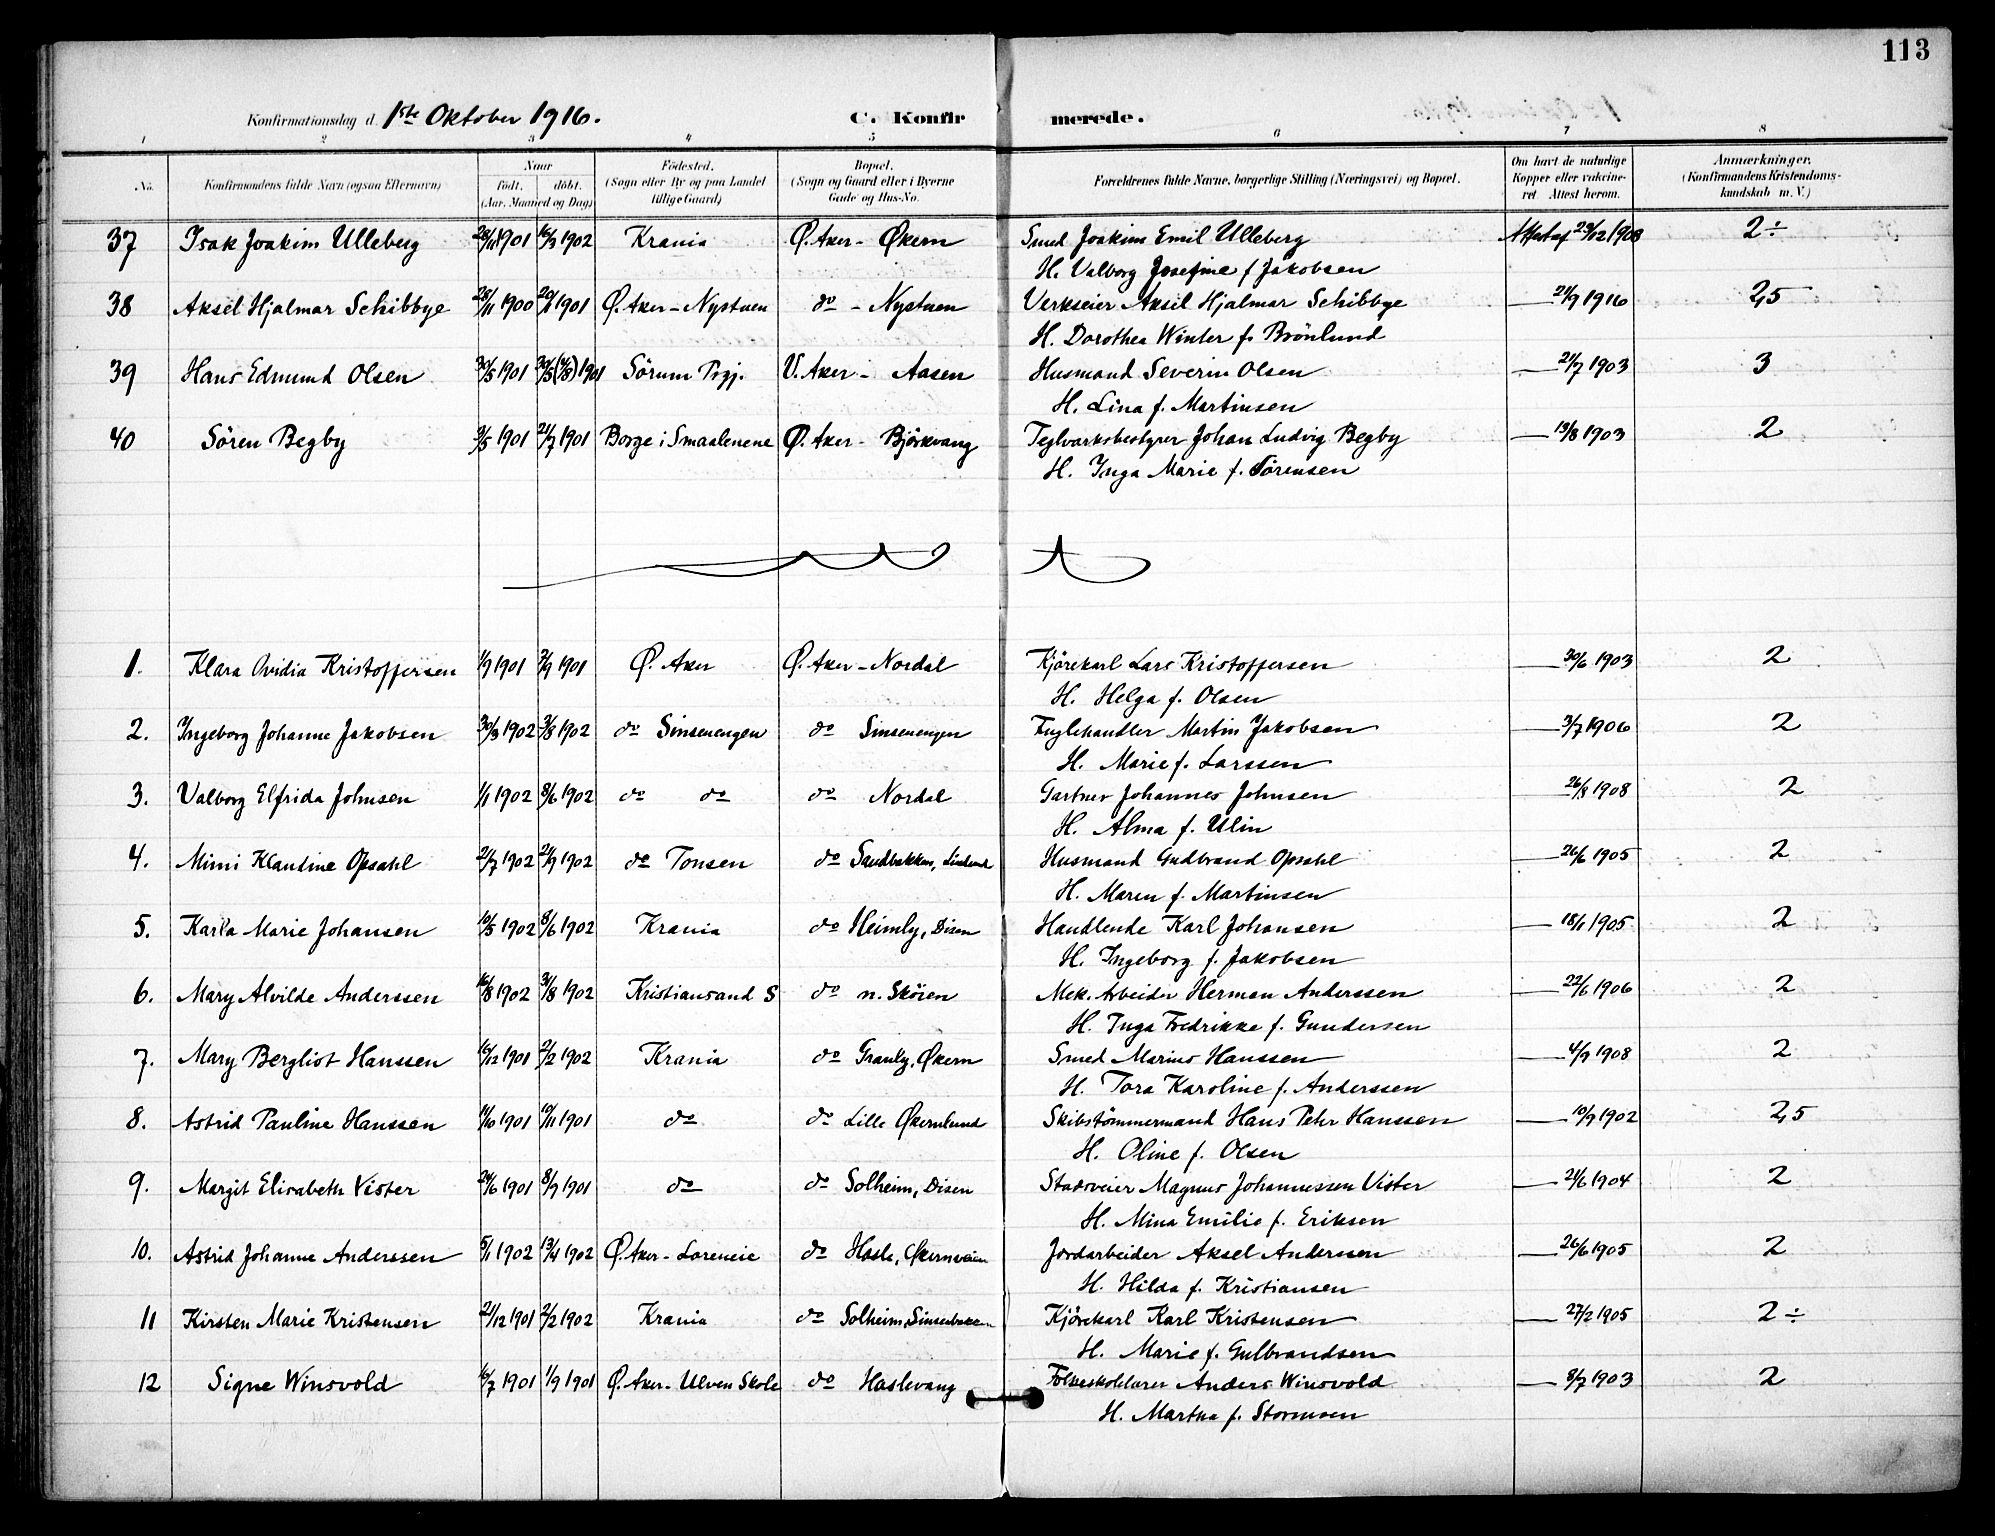 113
Konfirmationsdag d. 1ste Oktober 1916. C. Konfirmerede.
1 2 3 4 5 6 7 8
No. Konfirmandens fulde Navn (ogsaa Efternavn) Naar født. døbt. (Aar, Maaned og Dag) Fødested. (Sogn eller By og paa Landet tillige Gaard) Bopæl. (Sogn og Gaard eller i Byerne Gade og Hus-No. Forældrenes fulde Navne, borgerlige Stilling (Næringsvei) og Bopæl. Om havt de naturlige Kopper eller vakcineret. Attest herom. Anmærkninger. (Konfirmandens Kristendomskundskab m. V.)
37 Isak Joakim Ulleberg 1901 16/3 1902 Krania Ø. Aker - Økern Smed Joakim Emil Ulleberg Attest af 29/12 1908 2÷
H. Valborg Josefine f. Jakobsen
38 Aksel Hjalmar Schibbye 28/11 1900 1901 Ø. Aker - Nystuen do - Nystuen Verkseier Aksel Hjalmar Schibbye — 21/9 1916 2,5
H. Dorothea Winter f. Brönlund
39 Hans Edmund Olsen 30/5 1901 1901 Sörum Prgj. V. Aker - Aasen Husmand Severin Olsen — 21/7 1903 3
H. Lina f. Martinsen
40 Sören Begby 3/5 1901 21/7 1901 Borge i Smaalenene Ø. Aker - Björkvang Teglverksbestyrer Johan Ludvig Begby — 19/8 1903 2
H. Inga Marie f. Sörensen
1. Klara Ovidia Kristoffersen 1/9 1901 1901 Ø. Aker Ø. Aker - Nordal Kjörekarl Lars Kristoffersen — 30/6 1903 2
H. Helga f. Olsen
2. Ingeborg Johanne Jakobsen 30/3 1902 3/8 1902 do Sinsenengen do Sinsenengen Fuglehandler Martin Jakobsen — 3/7 1906 2
H. Marie f. Larssen
3. Valborg Elfrida Johnsen 1/1 1902 8/6 1902 do do do Nordal Gartner Johannes Johnsen — 26/8 1908 2
H. Alma f. Ulin
4. Mimi Klaudine Opsahl 2/7 1902 21/9 1902 do Tonsen do Sandbakken, Husmand Gudbrand Opsahl — 26/6 1905 2
H. Maren f. Martinsen
5. Karla Marie Johansen 10/5 1902 8/6 1902 Krania do Heimly, Disen Handlende Karl Johansen — 18/1 1905 2
H. Ingeborg f. Jakobsen
6. Mary Alvilde Anderssen 16/8 1902 31/8 1902 Kristiansand S do n. Skören Mek. Arbeider Herman Anderssen — 22/6 1906 2
H. Inga Fredrikke f. Gundersen
7. Mary Bergliot Hanssen 16/12 1901 2/2 1902 Krania do Granly, Økern Smed Marius Hanssen — 4/9 1908 2
H. Tora Karoline f. Anderssen
8. Astrid Pauline Hanssen 11/10 1901 10/11 1901 do do Lille Økernlund Skibstömmermand Hans Peter Hanssen — 10/9 1902 2,5
H. Oline f. Olsen
9. Margit Elisabeth Vister 24/6 1901 8/9 1901 do do Solheim, Disen Magnus Johannessen Vister — 21/6 1904 2
H. Mina Emilie f. Eriksen
10. Astrid Johanne Anderssen 5/1 1902 13/4 1902 Ø. Aker - Loreneie do Hasle, Økernveien Jordarbeider Aksel Andersen — 26/6 1905 2
H. Hilda f. Kristiansen
11 Kirsten Marie Kristensen 21/12 1901 2/2 1902 Krania do Solheim, Sinsenbakken Kjörekarl Karl Kristensen — 27/2 1905 2÷
H. Marie f. Gulbrandsen
12 Signe Winsvold 16/7 1901 1/9 1901 Ø. Aker - Ulven Skole do Haslevang Folkeskolelærer Anders Winsvold — 8/7 1903 2
H. Martha f. Stormoen